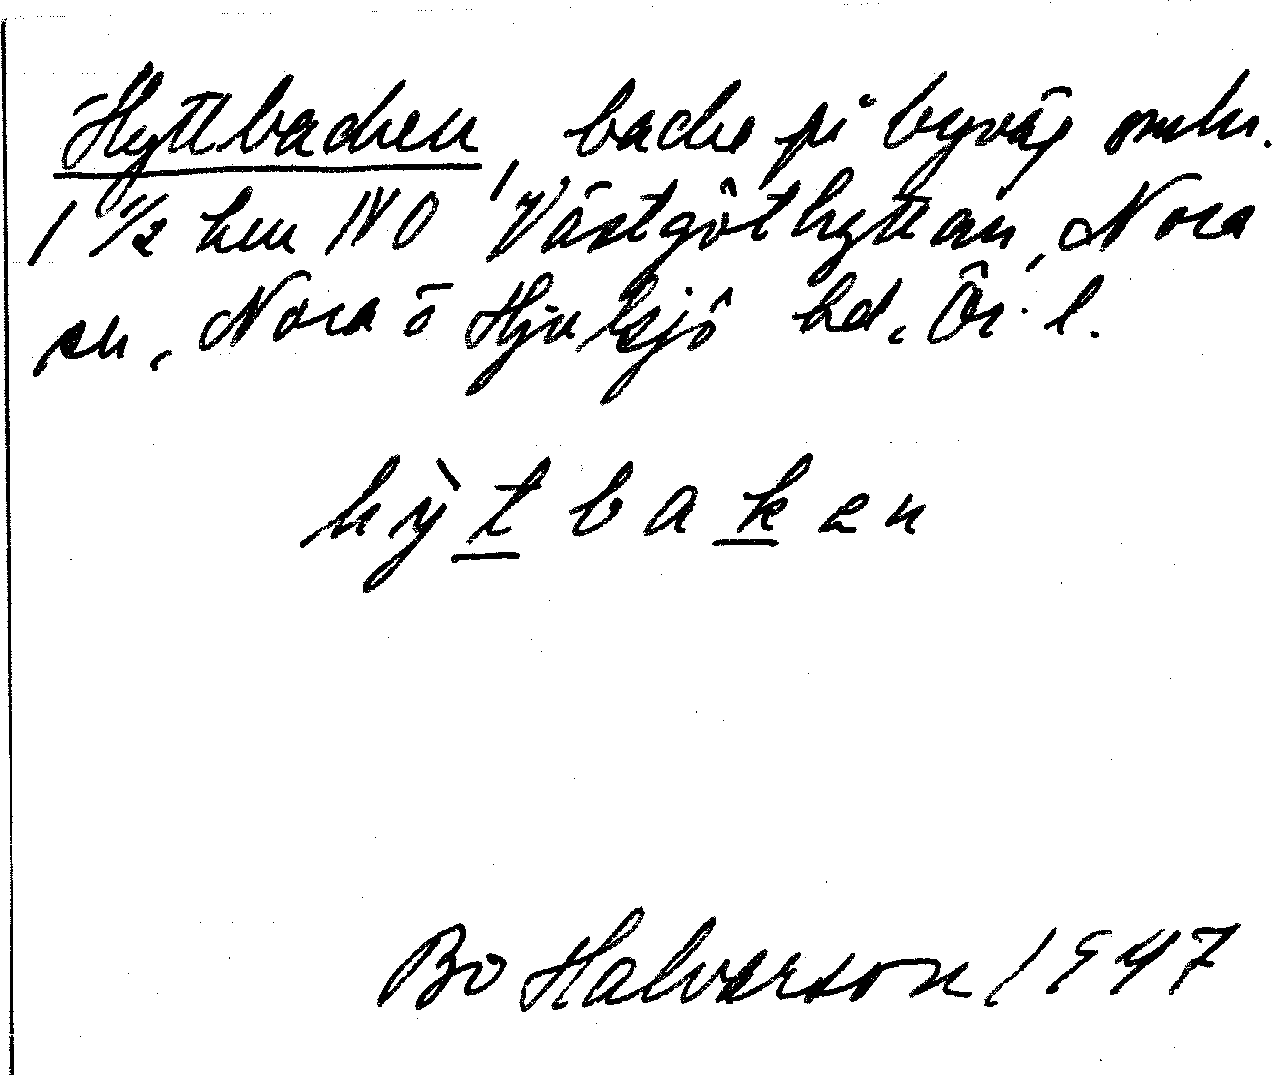 Hyttbacken, backe på byväg omkr.
1 1/2 km NO Västgöthyttan, Nora
sn, Nora o Hjulsjö hd, Ör. l.
hỳt baken
Bo Halvarson 1947